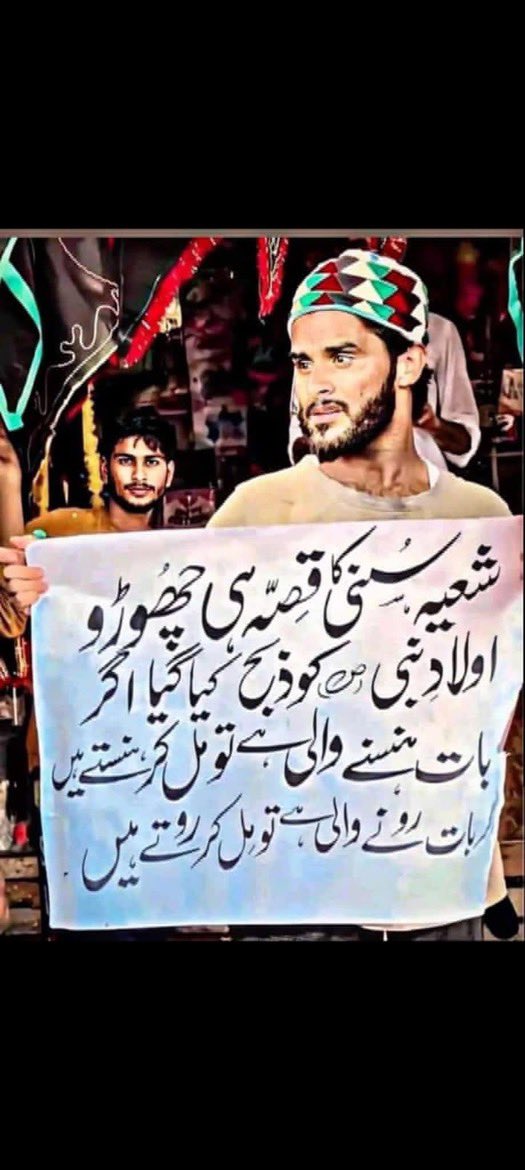 شعیہ سُنی کا قِصّہ ہی چھوڑو
اولادِ نبی ؐ کو ذبح کیا گیا اگر
بات ہنسنے والی ہے تو مل کر ہنستے ہیں
گر بات رونے والی ہے تو مِل کر روتے ہیں